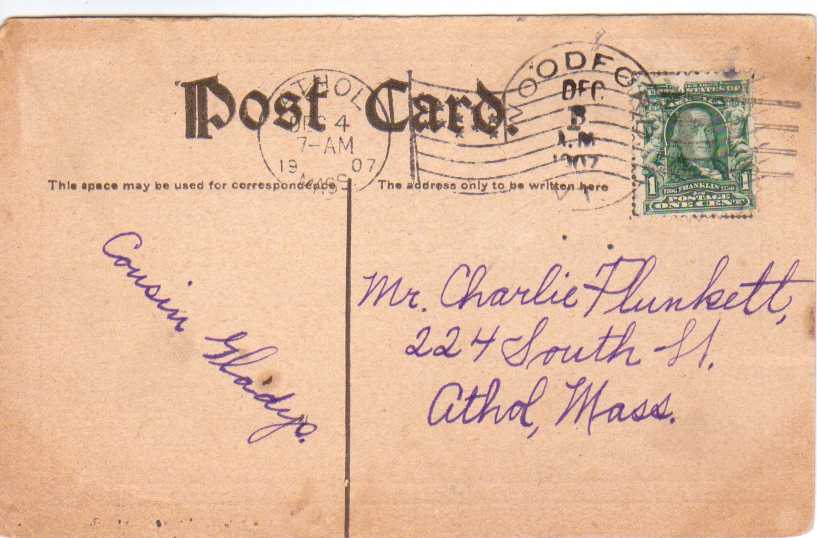 Post Card.
ATHOL
DEC 4
7-AM
19 07
MASS.
WOODFORD
DEC
3
A.M.
1907
VT
POSTAGE
ONE CENT
1706 FRANKLIN 1790
1 1
This space may be used for correspondence
The address only to be written here
Cousin Gladys.
Mr. Charlie Plunkett,
224 South St.
Athol, Mass.